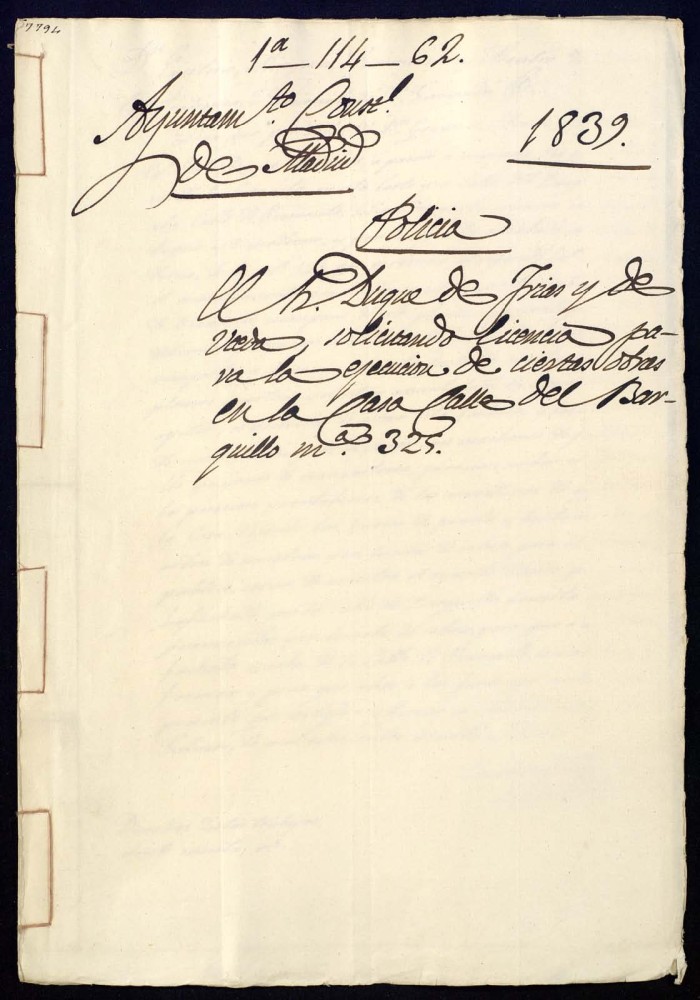 7794
1ª - 114 - 62.
Ayuntam.to Const.l
de Madrid
1839.
Policia
El Sr. Duque de Frias y de
Uceda, solicitando licencia pa-
ra la ejecucion de ciertas obras
en la Casa Calle del Bar-
quillo m.a 325.